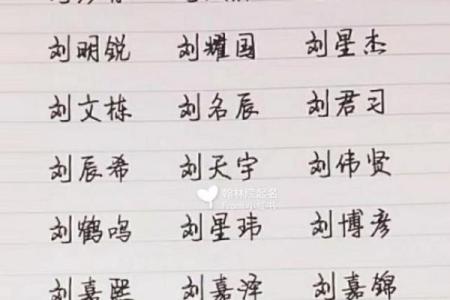 刘明锐 刘耀国 刘星杰
刘文栋 刘名辰 刘君习
刘辰希 刘天宇 刘伟贤
翰林院起名
刘鹤鸣 刘星玮 刘博彦
刘嘉熙 刘嘉泽 刘嘉锦